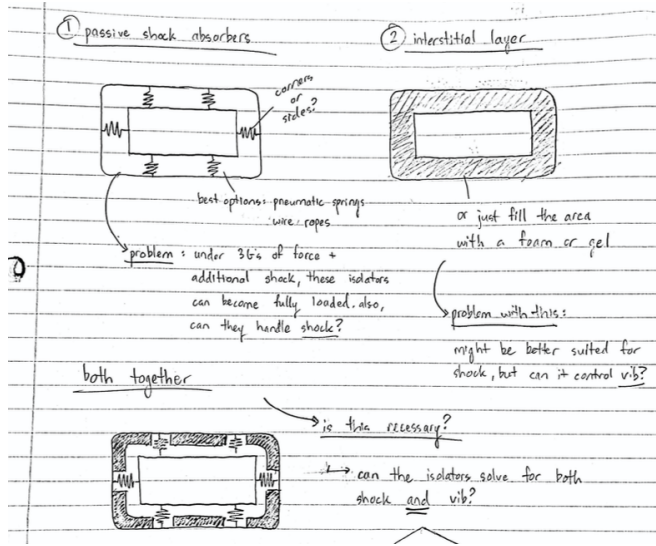 ① passive shock absorbers
corners
or
sides?
best options: pneumatic springs
wire ropes
problem: under 3G's of force +
additional shock, these isolators
can become fully loaded. also,
can they handle shock?
② interstitial layer
or just fill the area
with a foam or gel
problem with this:
might be better suited for
shock, but can it control vib?
both together
is this necessary?
can the isolators solve for both
shock and vib?